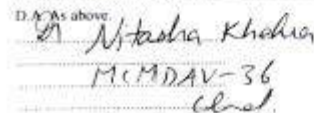 D.A. As above
Nitasha Khehra
MCMDAV-36
Chd.